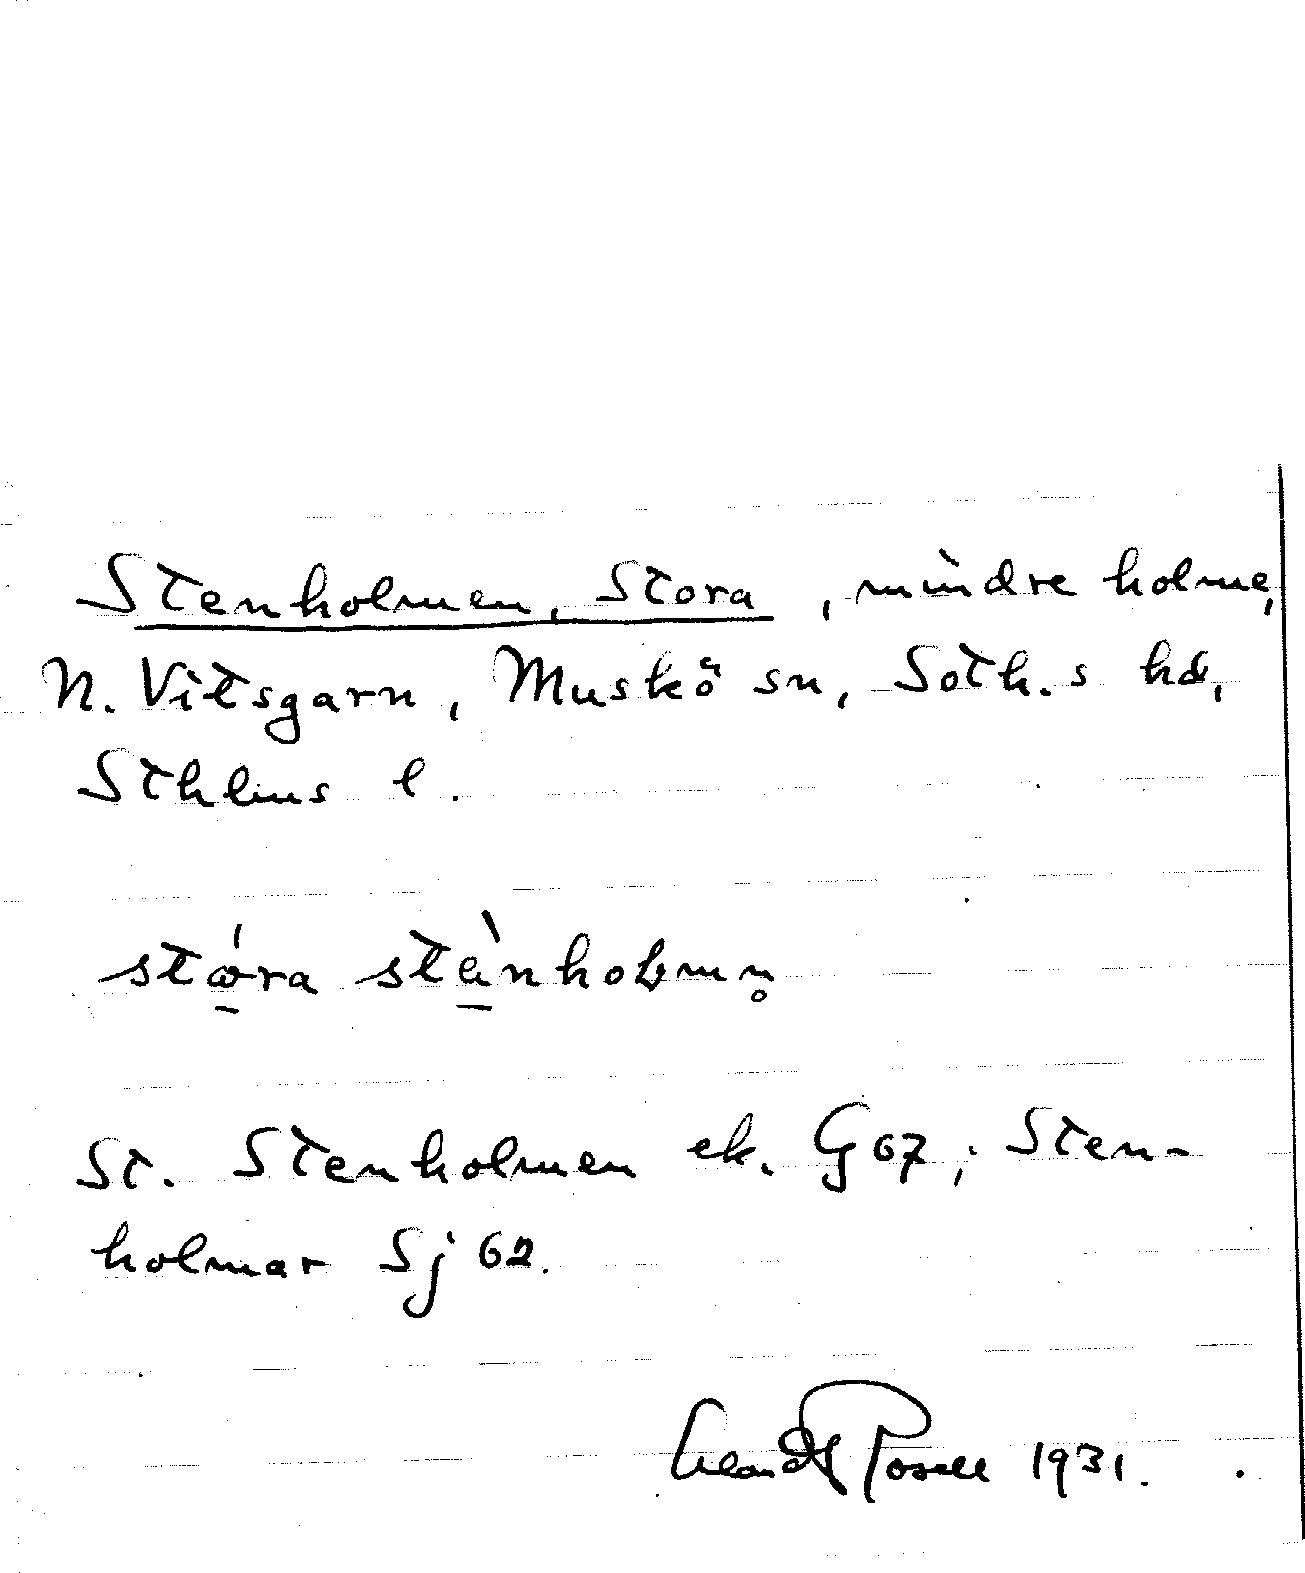 Stenholmen, Stora, mindre holme,
N. Vitsgarn, Muskö sn, Soth.s hd,
Sthlms l.
stǫ́ra stè̱nholmn̥
St. Stenholmen ek. G 67; Sten-
holmar Sj 62.
Rosell 1931.